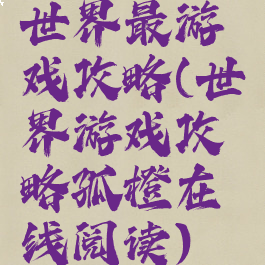 世界最游
戏攻略(世
界游戏攻
略孤橙在
线阅读)